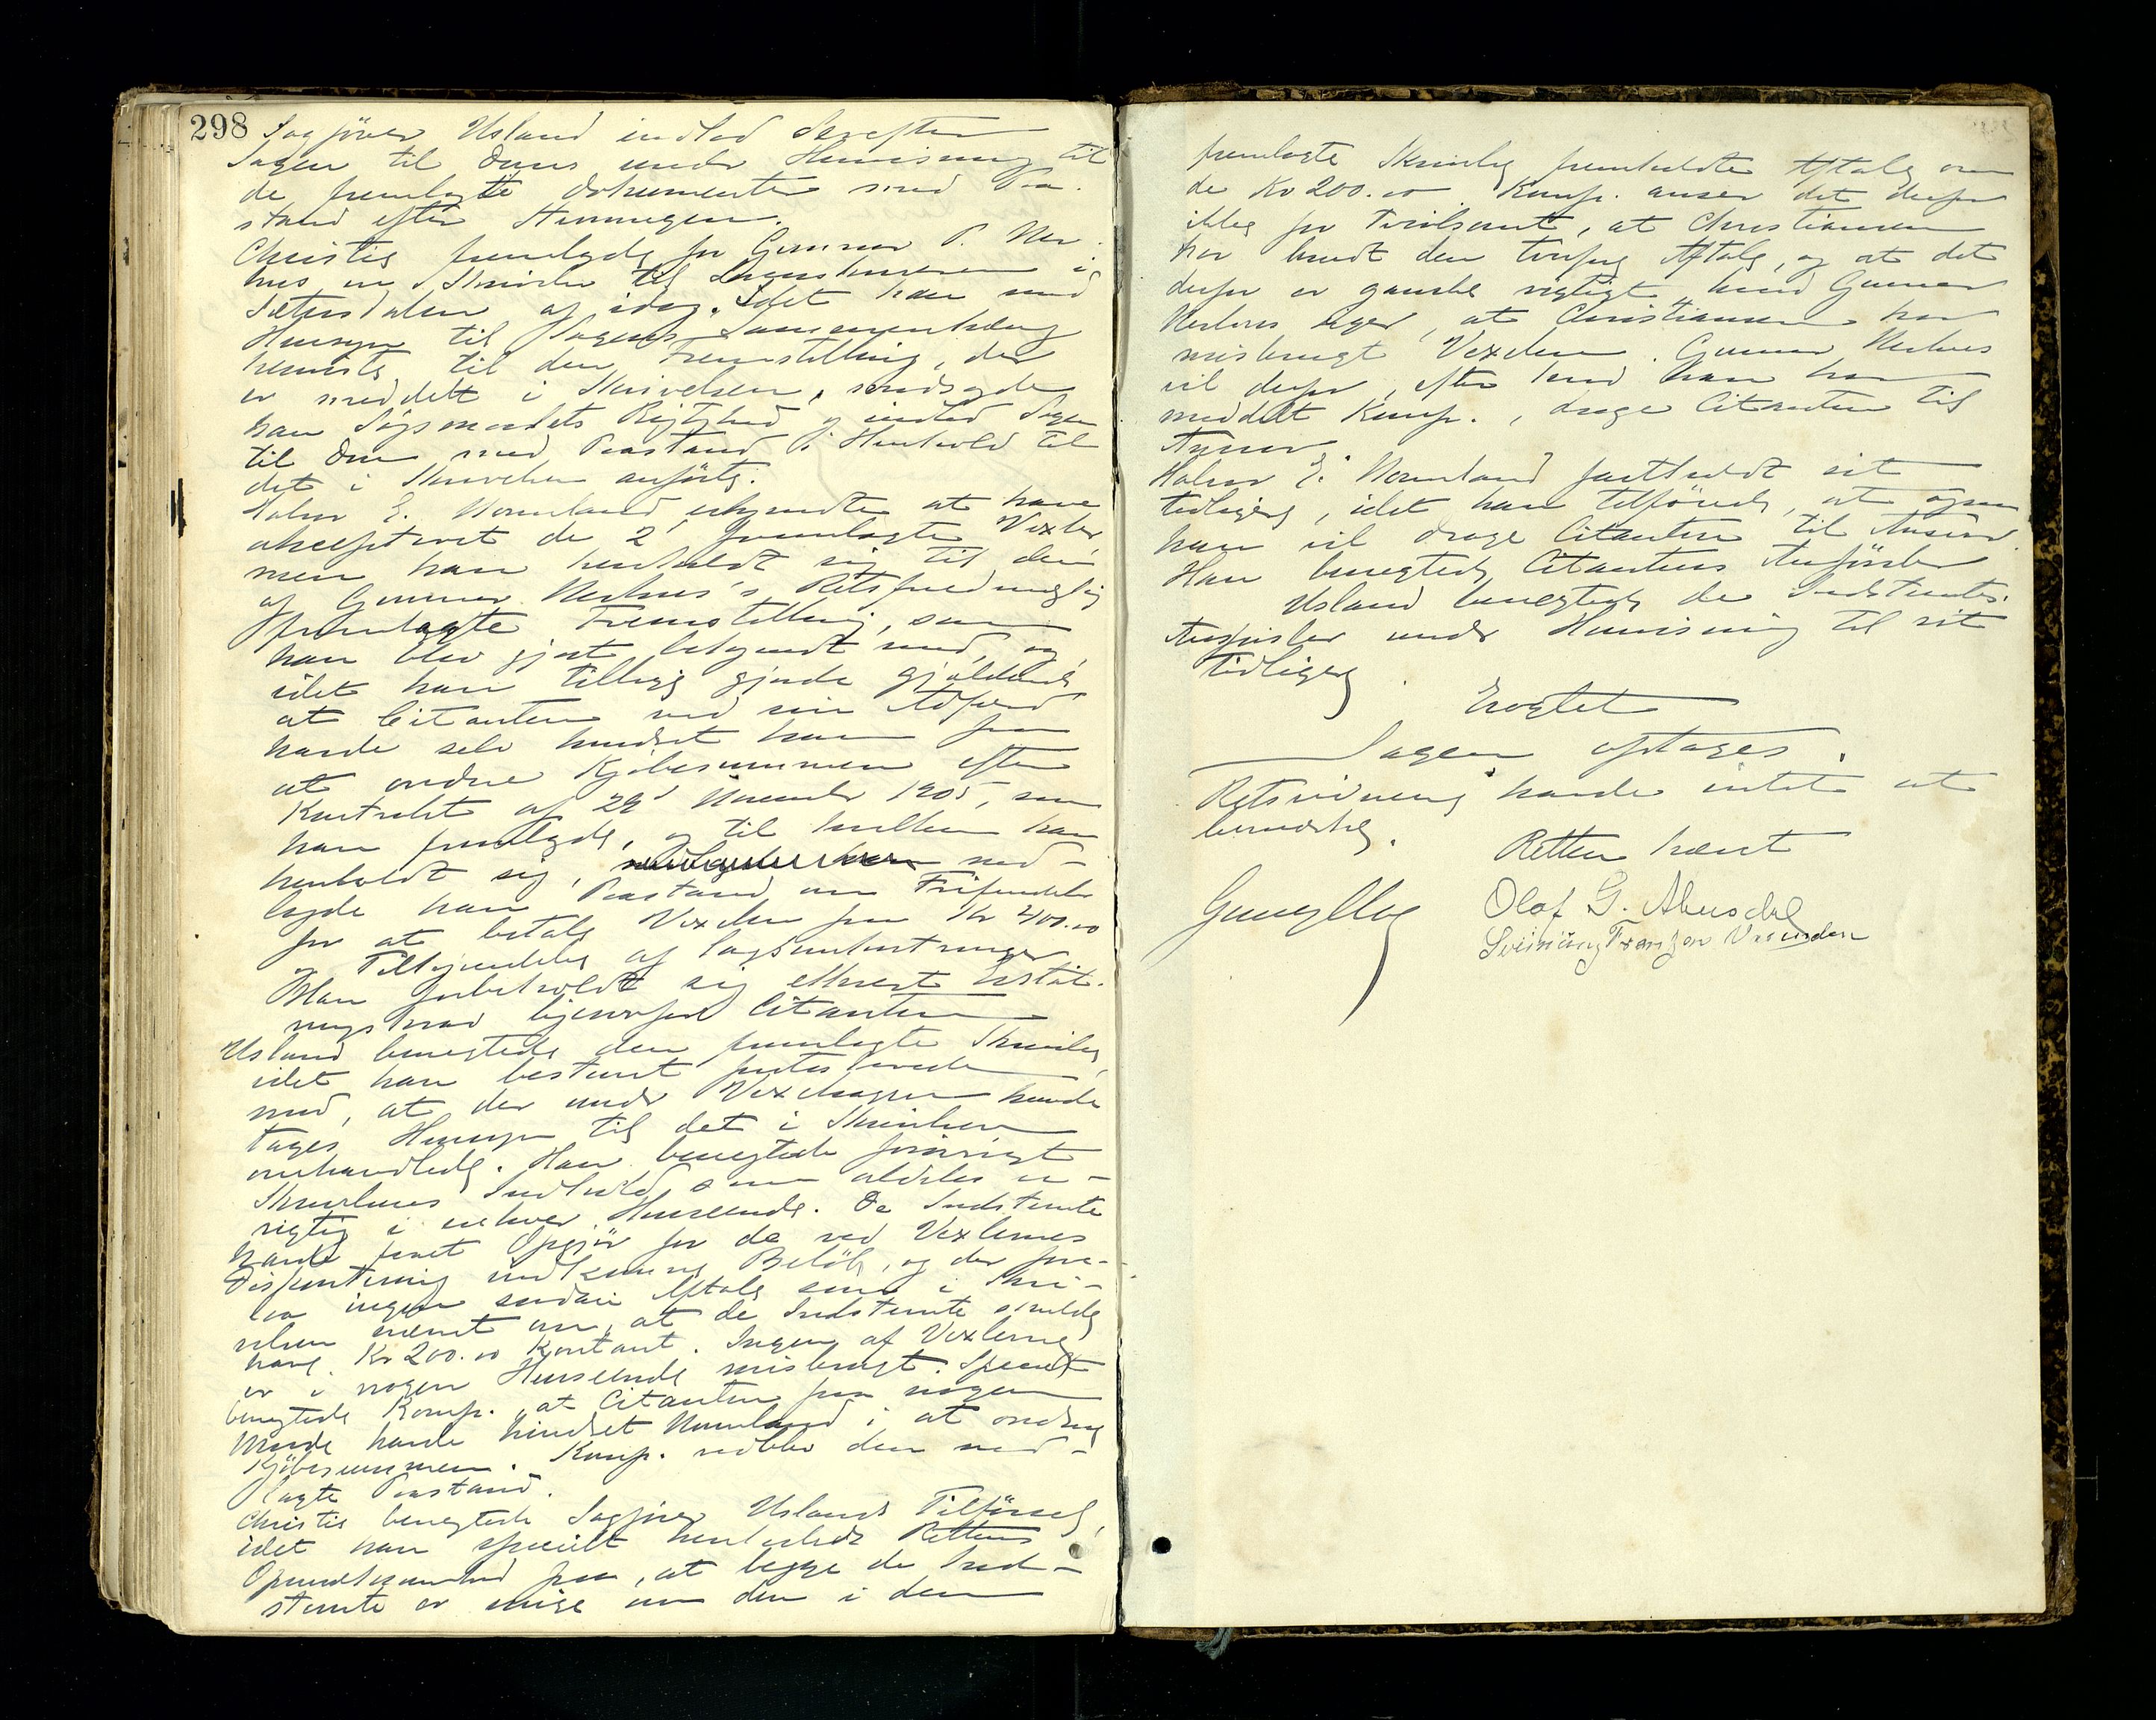 298
Sagfører Usland indlod derefter
Sagen til Doms under Henvisning til
de fremlagte Dokumenter med Paa-
stand efter Stevningen.
Christie fremlagde for Gunnar P.
hus en Skrivelse til Sorenskriveren i
Sætersdalen af idag. Idet han med
Hensyn til Sagens Sammenhæng
henviste til den Fremstilling, der
er meddelt i Skrivelsen, modsagde
han Søgsmaalets Rigtighed og indlod Sagen
til Dom med Paastand i Henhold til
det i Skrivelsen anførte.
Halvor E. Homeland erkjendte at have
akcepteret de 2 fremlagte Vexler,
men han henholdt sig til den
af Gunnar Retsfuldmægtig
fremlagte Fremstilling, som
han blev gjort bekjendt med, og
idet han tillige gjorde gjældende
at Citanten ved sin Adfærd
havde selv hindret ham fra
at ordne Kjøbesummen efter
Kontrakt af 29' November 1905, som
han fremlagde, og til hvilken han
henholdt sig, ned-
lagde han Paastand om Frifindelse
for at betale Vexelen paa Kr 400.00
og Tilkjendelse af Sagsomkostninger
Han forbeholdt sig ethvert Erstat-
ningskrav ligeoverfor Citanten
Usland benegtede den fremlagte Skrivelse,
idet han bestemt protesterede
mod, at der under Vexelsagen kunde
tages Hensyn til det i Skrivelsen
omhandlede. Han benegtede forøvrigt
Skrivelsens Indhold som aldeles u-
rigtig i enhver Henseende. De Indstevnte
havde faaet Opgjør for de ved Vexlernes
Diskontering indkomne Beløb, og der fore-
laa ingen saadan Aftale som i Skri-
velsen nævnt om, at de Indstevnte skulde
have Kr 200.00 kontant. Ingen af Vexlerne
er i nogen Henseende misbrugt. Specielt
benegtede Komp. at Citanten paa nogen
Maade havde hindret Homeland i at ordne
Kjøbesummen. Komp. vedblev den ned-
lagte Paastand.
Christie benegtede Sagfører Uslands Tilførsel,
idet han specielt henledede Rettens
Opmerksomhed paa, at begge de Ind-
stevnte er enige om den i den
fremlagte Skrivelse fremholdte Aftale om
de Kr 200.00 Komp. anser det derfor
ikke for tvilsomt, at Christiansen
har brudt den trufne Aftale, og at det
derfor er ganske rigtigt, hvad Gunnar
siger, at Christiansen har
misbrugt Vexelen. Gunnar
vil derfor, efter hvad han har
meddelt Komp., drage Citanten til
Ansvar.
Halvor E. Homeland fastholdt sit
tidligere, idet han tilføiede, at ogsaa
han vil drage Citanten til Ansvar.
Han benegtede Citantens Anførsler
Usland benegtede de Indstevntes
Anførsler under Henvisning til sit
tidligere.
Eragtet
Sagen optages.
Retsvidnerne havde intet at
bemærke.
Retten hævet
Olaf G.